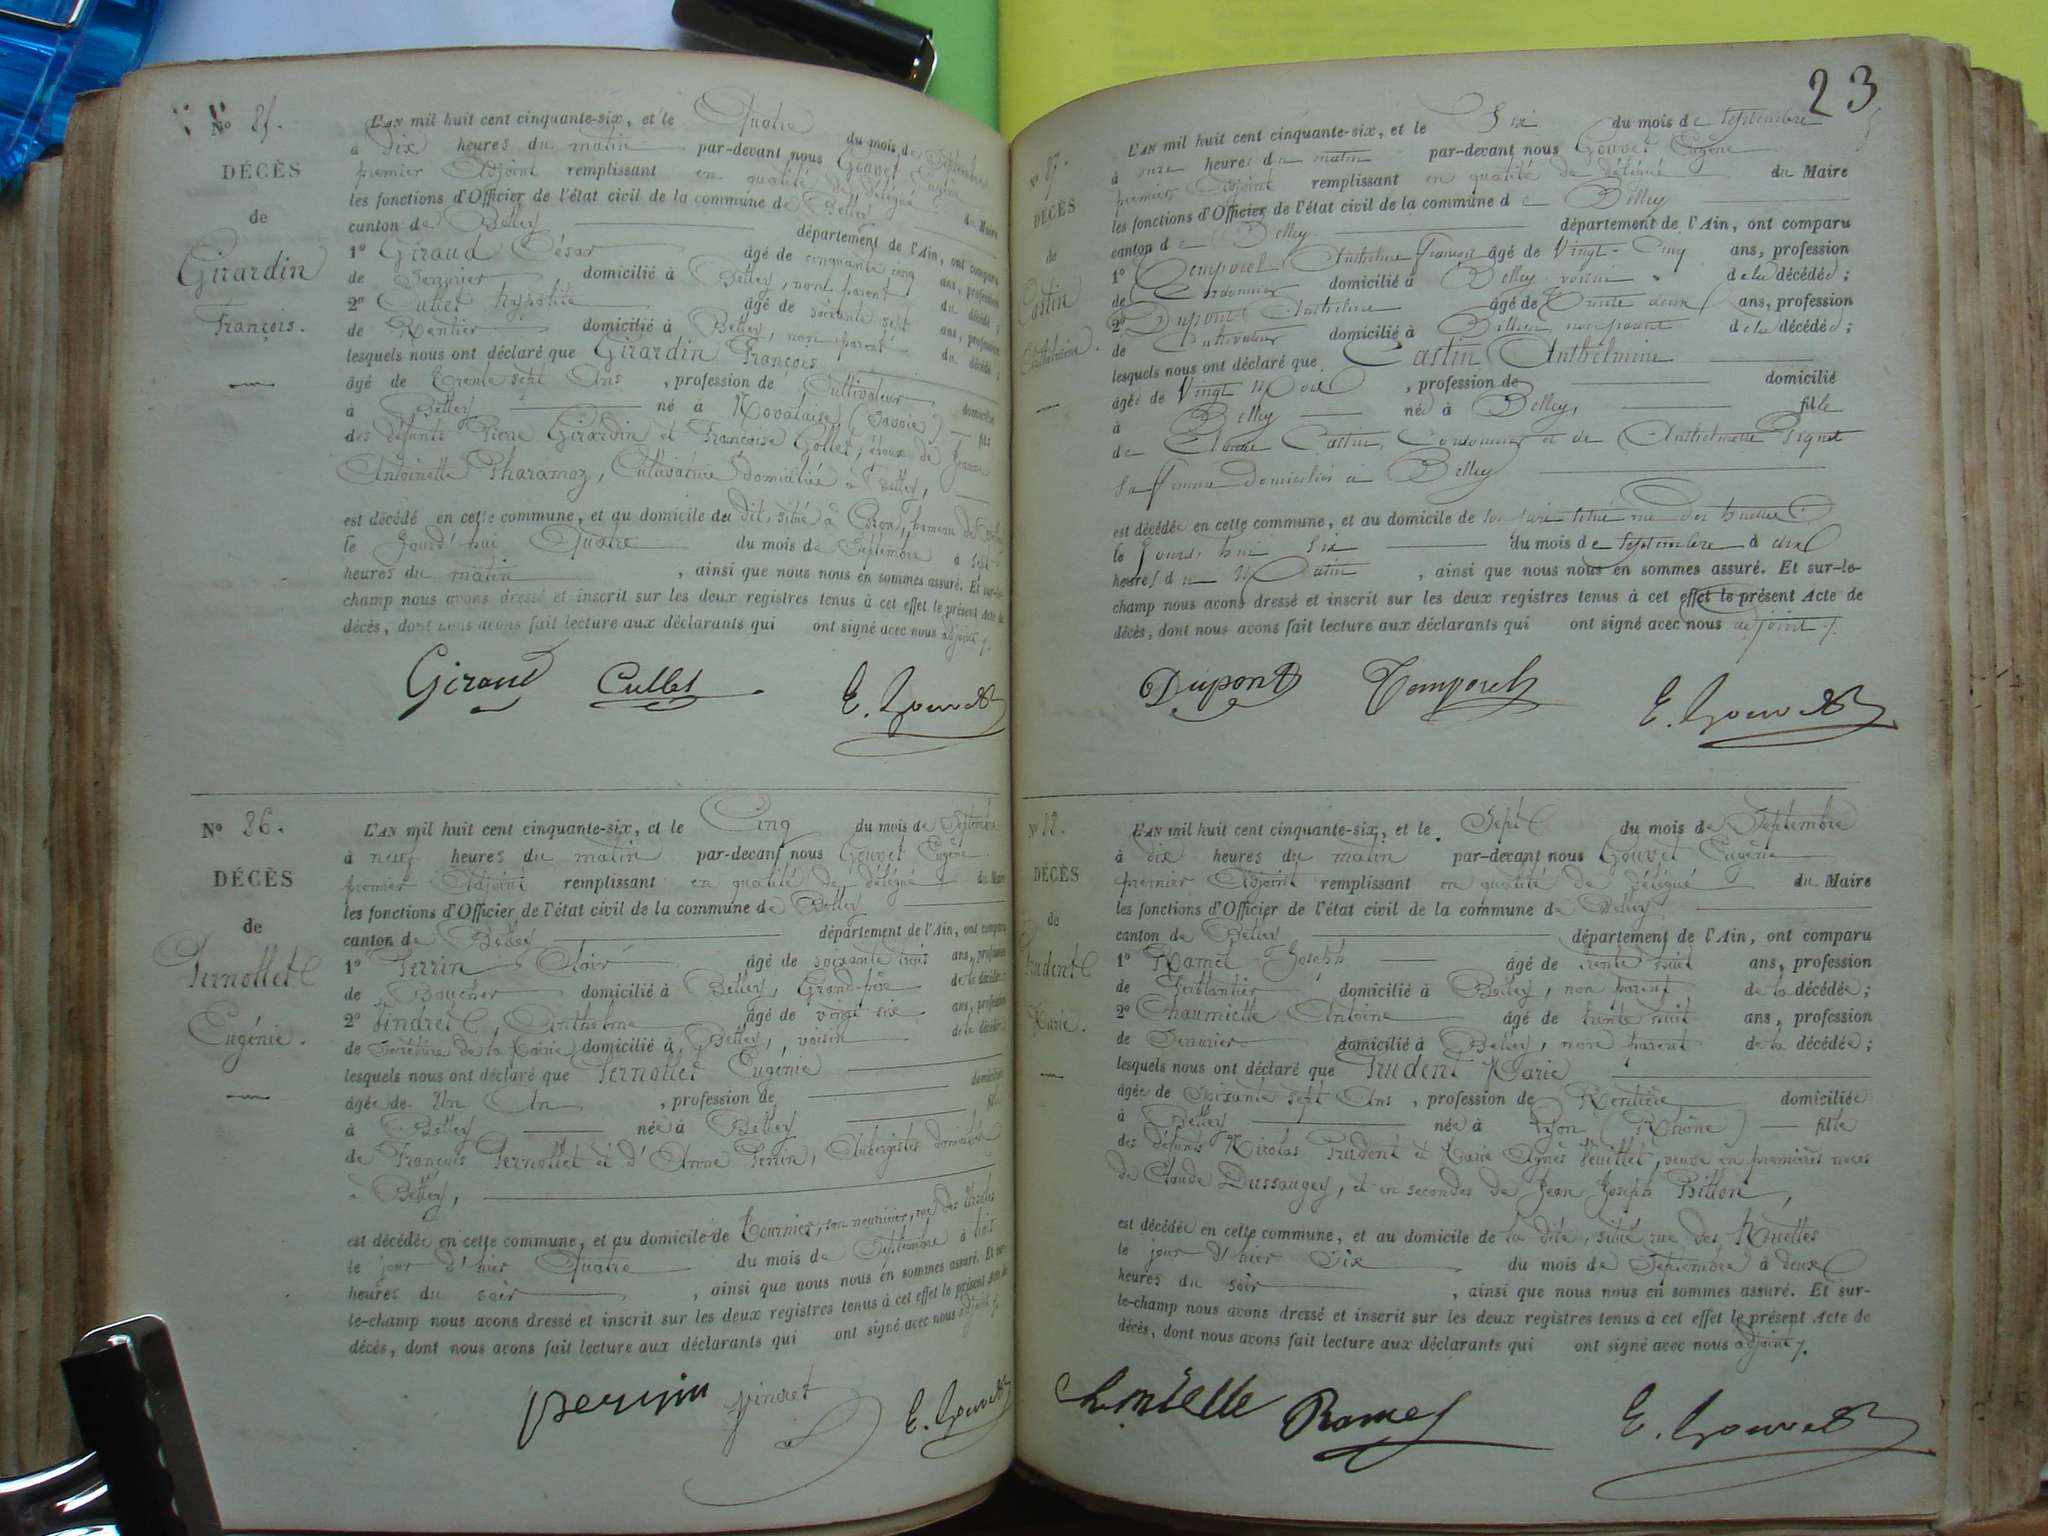 N° 85.
DÉCÈS
de
Girardin
François.
L'AN mil huit cent cinquante-six, et le Quatre du mois de Septembre
à dix heures du matin par-devant nous Gouvet Eugène
premier Adjoint remplissant en qualité de délégué du Maire
les fonctions d'Officier de l'état civil de la commune de Belley
canton de Belley département de l'Ain, ont comparu
1° Giraud César âgé de cinquante cinq ans, profession
de Serrurier, domicilié à Belley, non parent du décédé;
2° Cullet hypolite âgé de soixante sept ans, profession
de Rentier domicilié à Belley, non parent du décédé;
lesquels nous ont déclaré que Girardin François
âgé de trente sept Ans, profession de Cultivateur, domicilié
à Belley né à Novalaise (Savoie) fils
des défunts Pierre Girardin et Françoise Gollet, époux de Jeanne
Antoinette Pharamoz, Cultivatrice domiciliée à Belley,
est décédé en cette commune, et au domicile du dit, situé à Coron, hameau de
le jourd'hui Quatre du mois de Septembre à sept
heures du matin, ainsi que nous nous en sommes assuré. Et sur-le-
champ nous avons dressé et inscrit sur les deux registres tenus à cet effet le présent Acte de
décès, dont nous avons fait lecture aux déclarants qui ont signé avec nous adjoint.
Giraud Cullet E. Gouvet
N° 86.
DÉCÈS
de
Pernollet
Eugénie.
L'AN mil huit cent cinquante-six, et le Cinq du mois de Septembre
à neuf heures du matin par-devant nous Gouvet Eugène
premier Adjoint remplissant en qualité de délégué du Maire
les fonctions d'Officier de l'état civil de la commune de Belley
canton de Belley département de l'Ain, ont comparu
1° Perrin Clair âgé de soixante trois ans, profession
de Boucher domicilié à Belley, Grand-père de la décédée;
2° Pindret, Anthelme âgé de vingt six ans, profession
de Secrétaire de la Mairie, domicilié à Belley, voisin de la décédée
lesquels nous ont déclaré que Pernollet Eugénie
âgée de Un An, profession de domiciliée
à Belley née à Belley fille
de François Pernollet et d'Anne Perrin, Aubergistes domiciliés
à Belley,
est décédée en cette commune, et au domicile de Tournier, son nourricier, rue des
le jour d'hier Quatre du mois de Septembre à huit
heures du soir, ainsi que nous nous en sommes assuré. Et sur-
le-champ nous avons dressé et inscrit sur les deux registres tenus à cet effet le présent Acte de
décès, dont nous avons fait lecture aux déclarants qui ont signé avec nous adjoint.
perrin pindret E. Gouvet
23
N° 87.
DÉCÈS
de
Castin
Anthelmine.
L'AN mil huit cent cinquante-six, et le Six du mois de Septembre
à onze heures du matin par-devant nous Gouvet Eugène
premier Adjoint remplissant en qualité de délégué du Maire
les fonctions d'Officier de l'état civil de la commune de Belley
canton de Belley département de l'Ain, ont comparu
1° Temporel Anthelme François âgé de Vingt-Cinq ans, profession
de Cordonnier domicilié à Belley voisin de la décédée;
2° Dupont Anthelme âgé de Trente deux ans, profession
de Cultivateur domicilié à Belley, non parent de la décédée;
lesquels nous ont déclaré que Castin Anthelmine
âgée de Vingt Mois, profession de domicilié
à Belley née à Belley, fille
de Claude Castin, Cordonnier et de Anthelmette Pignet
sa femme domiciliés à Belley
est décédée en cette commune, et au domicile de son père situé rue des huelles
le Jourd'hui Six du mois de Septembre à dix
heures du Matin, ainsi que nous nous en sommes assuré. Et sur-le-
champ nous avons dressé et inscrit sur les deux registres tenus à cet effet le présent Acte de
décès, dont nous avons fait lecture aux déclarants qui ont signé avec nous adjoint.
Dupont Temporel E. Gouvet
N° 88.
DÉCÈS
de
Prudent
Marie.
L'AN mil huit cent cinquante-six, et le Sept du mois de Septembre
à dix heures du matin par-devant nous Gouvet Eugène
premier Adjoint remplissant en qualité de délégué du Maire
les fonctions d'Officier de l'état civil de la commune de Belley
canton de Belley département de l'Ain, ont comparu
1° Ramel Joseph âgé de trente huit ans, profession
de Ferblantier domicilié à Belley, non parent de la décédée;
2° Chaumielle Antoine âgé de trente huit ans, profession
de Serrurier domicilié à Belley, non parent de la décédée;
lesquels nous ont déclaré que Prudent Marie
âgée de Soixante sept Ans, profession de Rentière domiciliée
à Belley née à Lyon (Rhône) fille
des défunts Nicolas Prudent et Marie Agnès Feuillet, veuve en premières noces
de Claude Dussaugey, et en secondes de Jean Joseph Billon,
est décédée en cette commune, et au domicile de la dite, situé rue des Huelles
le jour d'hier Six du mois de Septembre à deux
heures du soir, ainsi que nous nous en sommes assuré. Et sur-
le-champ nous avons dressé et inscrit sur les deux registres tenus à cet effet le présent Acte de
décès, dont nous avons fait lecture aux déclarants qui ont signé avec nous adjoint.
Chomielle Ramel E. Gouvet